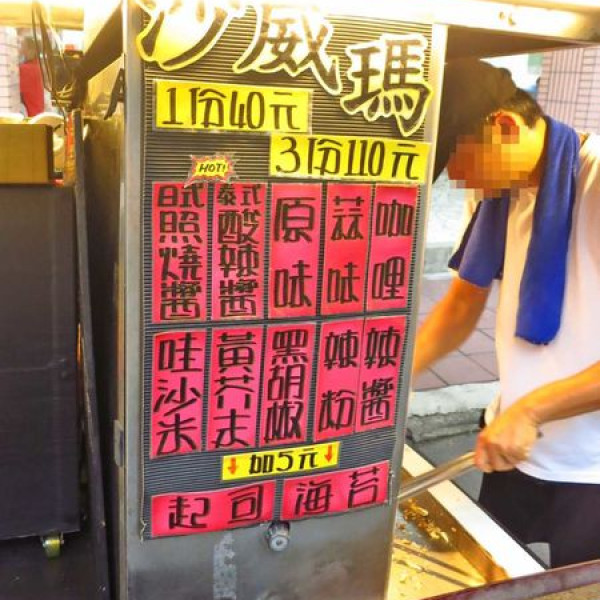 沙威瑪
1份40元
3份110元
HOT!
日式照燒醬
泰式酸辣醬
原味
蒜味
咖哩
哇沙米
黃芥末
黑胡椒
辣粉
辣醬
加5元
起司
海苔